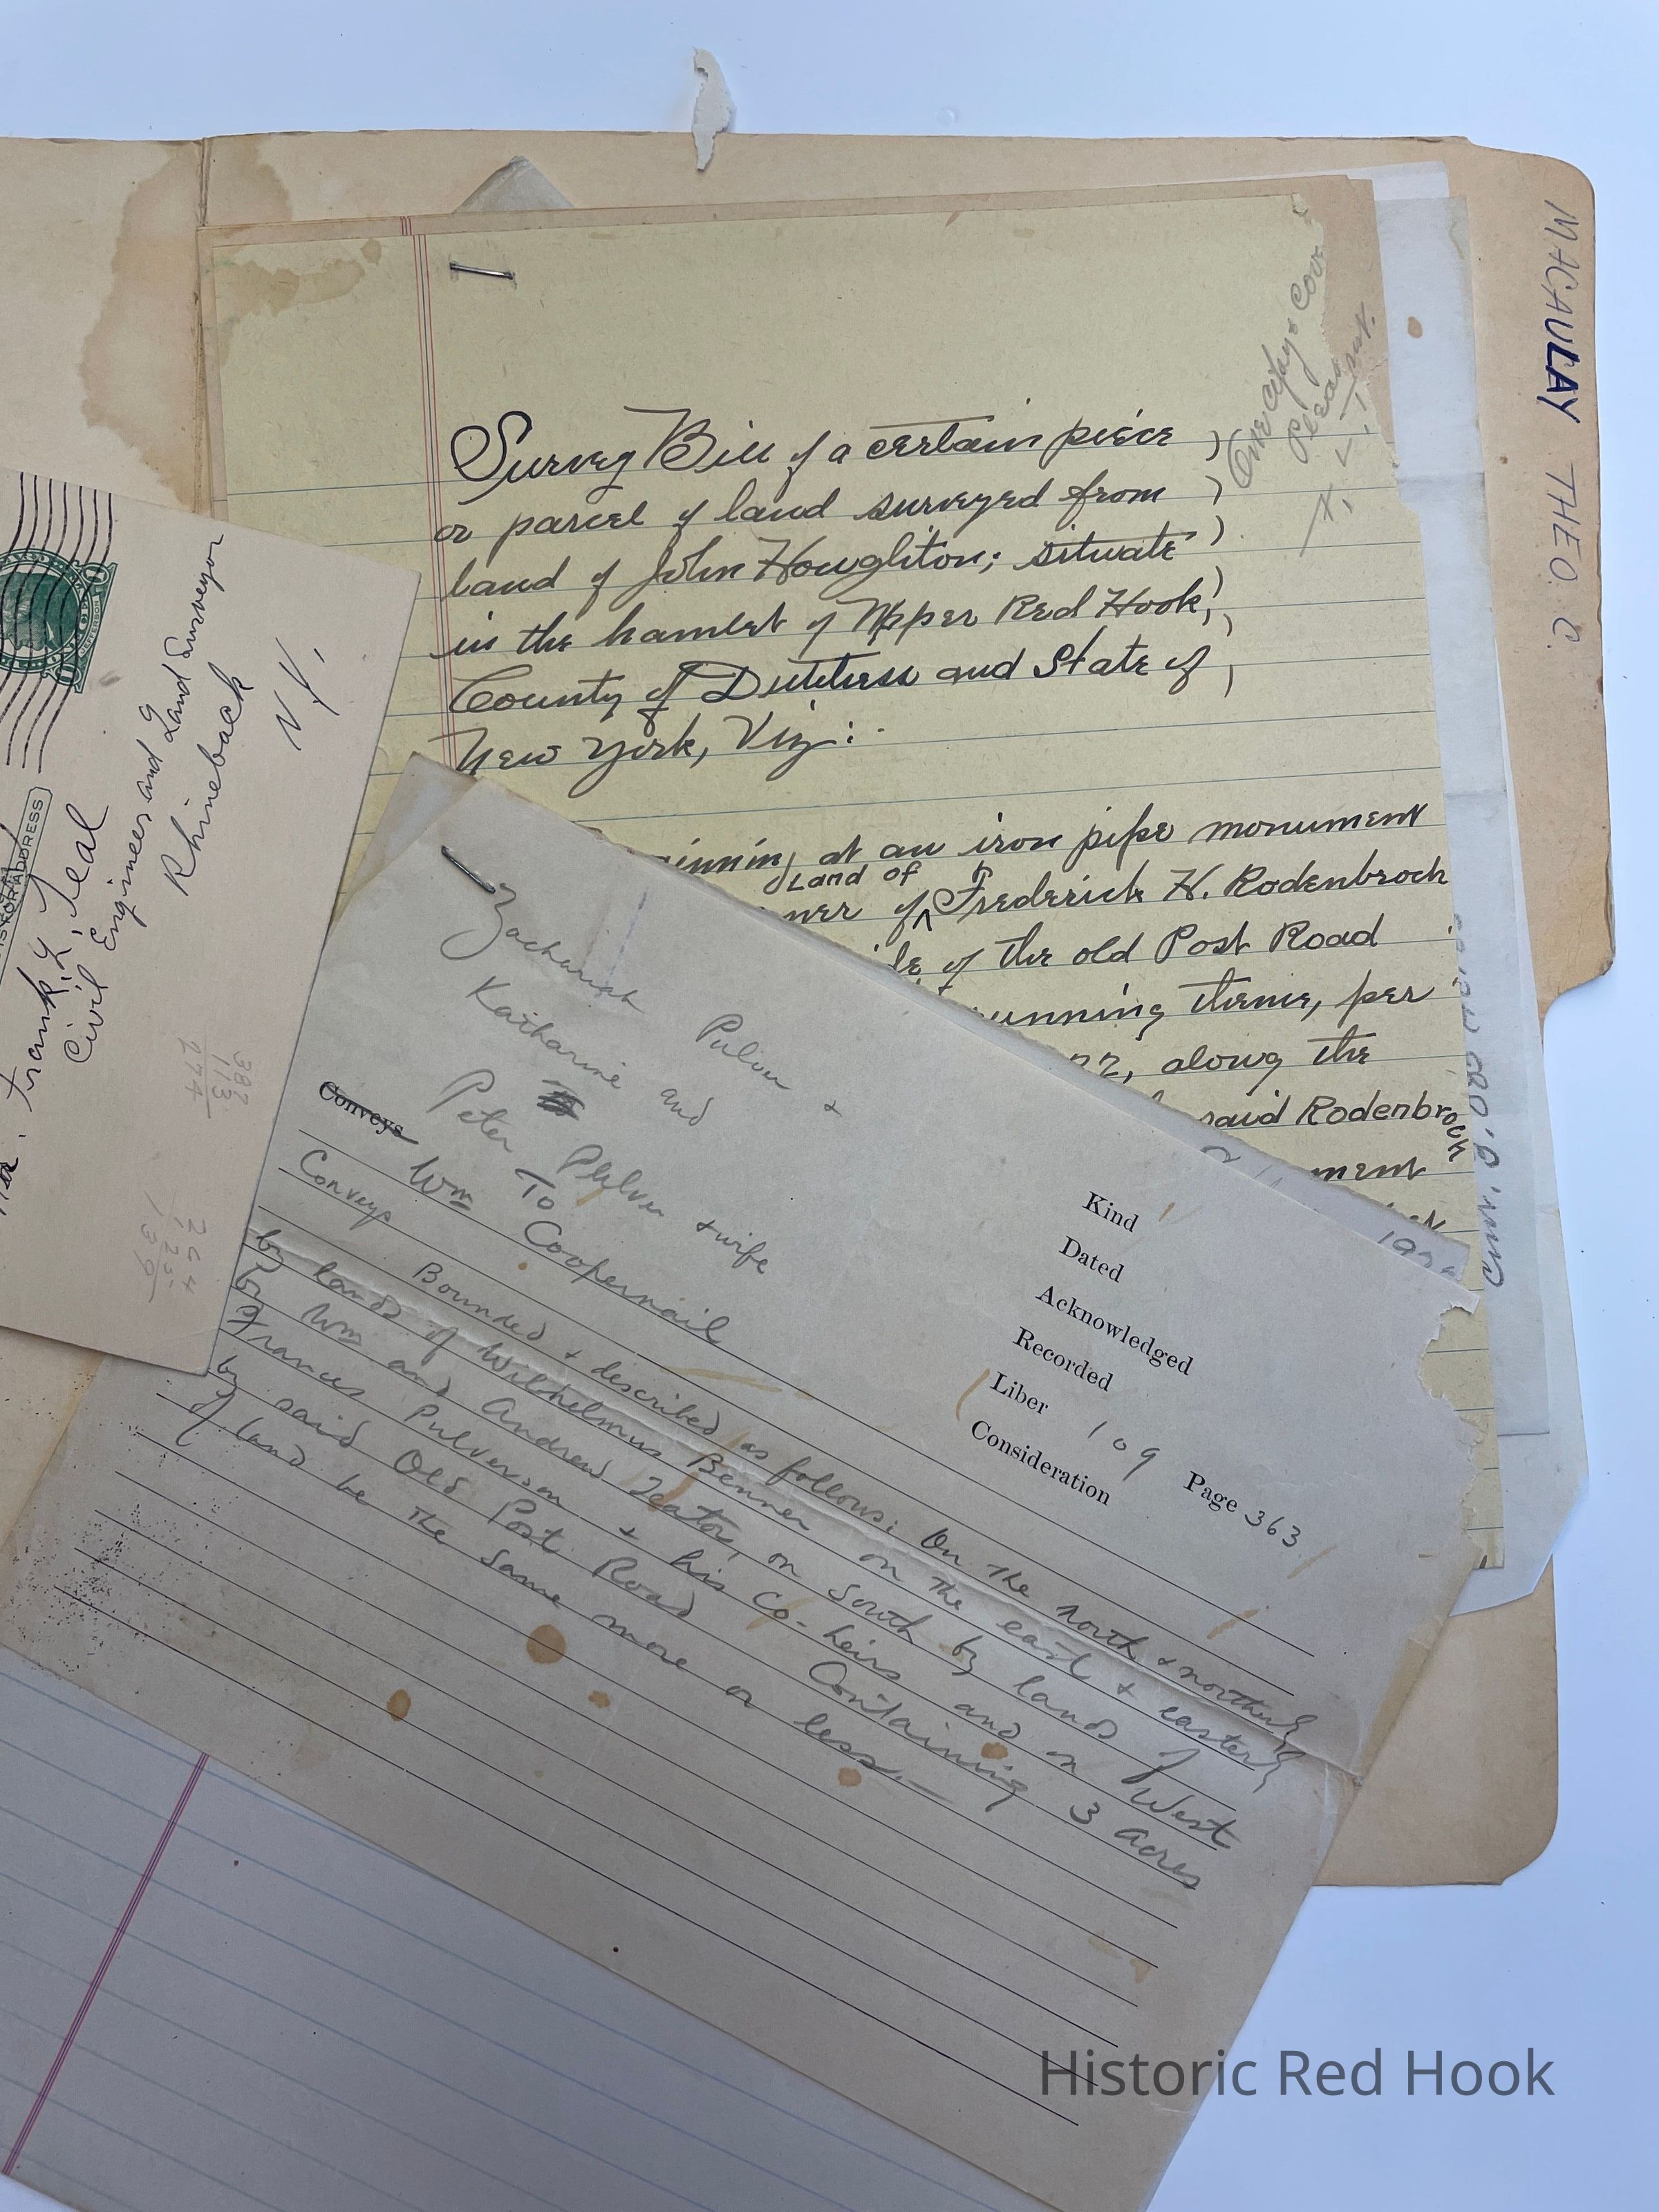 MACAULAY THEO. C.
One copy &
Please
Survey Bill of a certain piece )
or parcel of land surveyed from )
land of John Houghton; situate )
in the hamlet of Upper Red Hook, )
County of Dutchess and State of )
New York, Viz:-
at an iron pipe monument
Land of
of ^ Frederick H. Rodenbroch
of the old Post Road
running thence, per
22, along the
said Rodenbrock
ment
192
Zachariah Pulver &
Katharine and
Peter Pulver & wife
To
Conveys Wm Coopernail
Conveys
Bounded & described as follows: On the north & northerly
by lands of Wilhelmus Benner on the east & easterly
by Wm and Andrew Teator, on South by lands of
Frances Pulver & his Co-heirs and on West
by said Old Post Road Containing 3 acres
of land be the same more or less.
Kind
Dated
Acknowledged
Recorded
Liber 109 Page 363
Consideration
ADDRESS
Frank L. Teal
Civil Engineer and Land Surveyor
Rhinebeck
N.Y.
387
113
274
264
125
139
Historic Red Hook